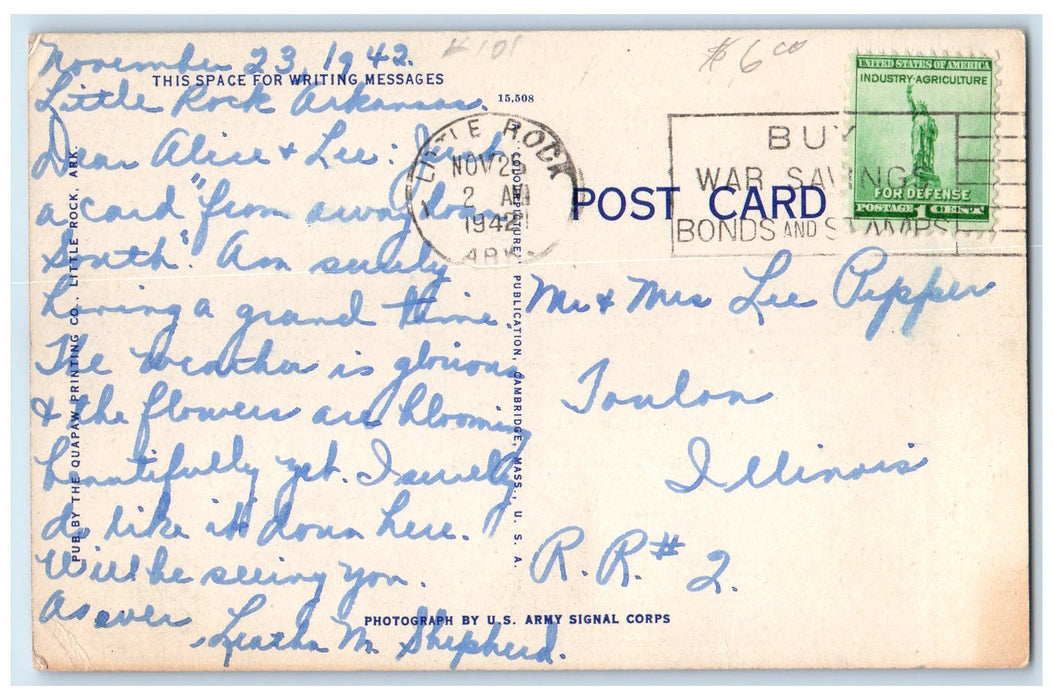 November 23, 1942.
THIS SPACE FOR WRITING MESSAGES
Little Rock Arkansas.
15,508
Dear Alice & Lee: Just
a card "from away down
South". Am surely
having a grand time.
The weather is glorious
& the flowers are blooming
beautifully yet. I surely
do like it down here.
Will be seeing you.
As ever
Leatha M Shepherd.
PUB. BY THE QUAPAW PRINTING CO., LITTLE ROCK, ARK.
PUBLICATION, CAMBRIDGE, MASS., U. S. A.
PHOTOGRAPH BY U.S. ARMY SIGNAL CORPS
$6.00
LITTLE ROCK
NOV 25
2 AM
1942
ARK.
BUY
WAR SAVINGS
BONDS AND STAMPS
UNITED STATES OF AMERICA
INDUSTRY·AGRICULTURE
FOR DEFENSE
POSTAGE 1 CENT
POST CARD
Mr & Mrs Lee Pepper
Toulon
Illinois
R.R.# 2.